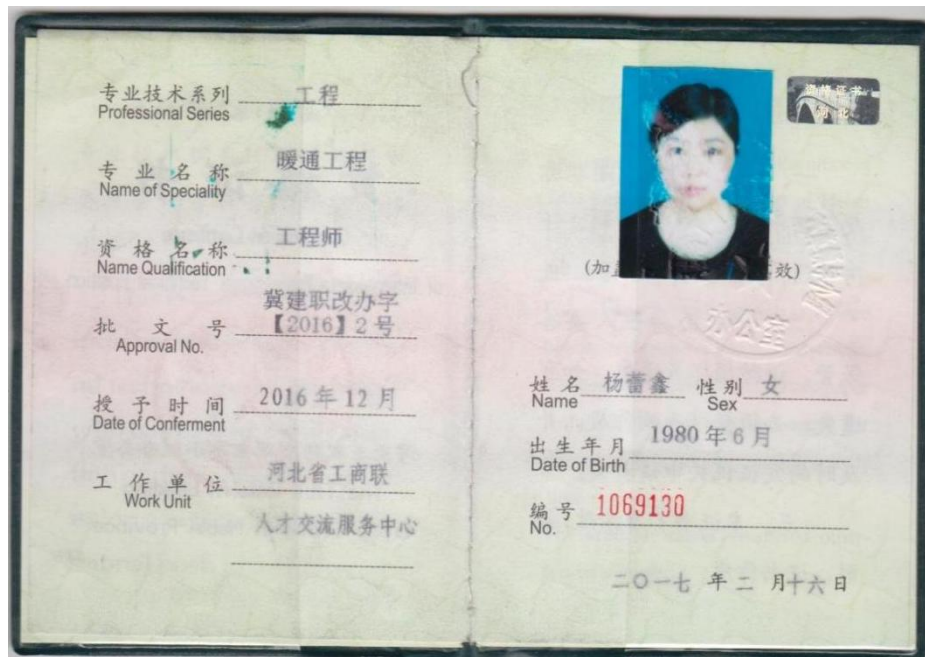 专业技术系列 工程
Professional Series
专业名称 暖通工程
Name of Speciality
资格名称 工程师
Name Qualification
冀建职改办字
批文号 【2016】2号
Approval No.
授予时间 2016年12月
Date of Conferment
工作单位 河北省工商联
Work Unit
人才交流服务中心
(加 效)
办公室
姓名 杨蕾鑫 性别 女
Name Sex
出生年月 1980年6月
Date of Birth
编号 1069130
No.
二〇一七年二月十六日